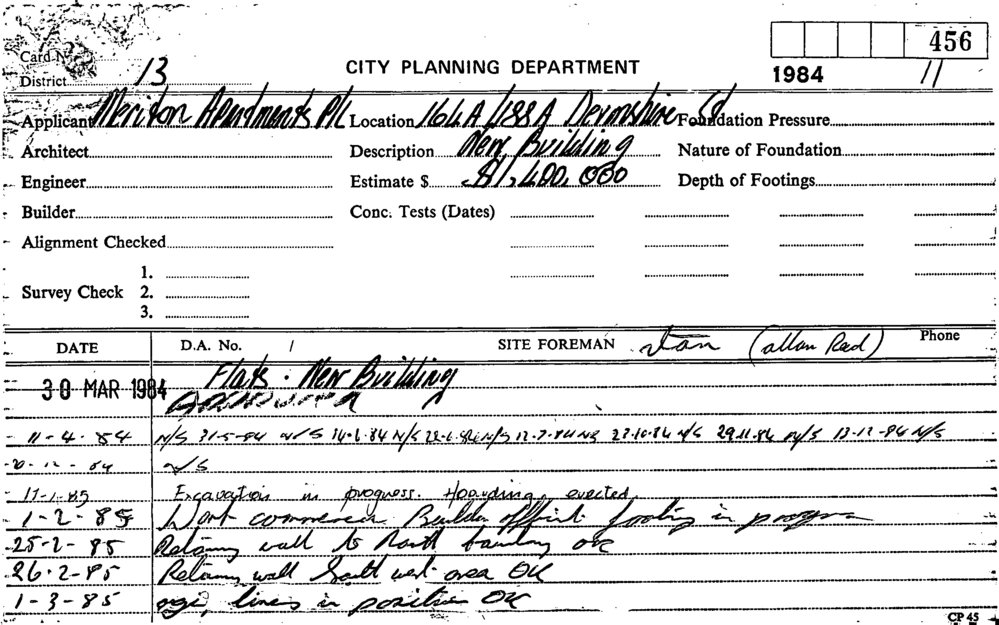 Card No. 456
District 13 CITY PLANNING DEPARTMENT 1984 11
Applicant Meriton Apartments P/L Location 164A/188A Devonshire St Foundation Pressure
Architect Description New Building Nature of Foundation
Engineer Estimate $ $1,400,000 Depth of Footings
Builder Conc. Tests (Dates)
Alignment Checked
1.
Survey Check 2.
3.
DATE D.A. No. / SITE FOREMAN (allan Read) Phone
30 MAR 1984 Flats. New Building
11-4-84 N/S 31-5-84 N/S 14-6-84 N/S 28-6-84 N/S 12-7-84 N/S 23-10-84 N/S 29.11.84 N/S 13-12-84 N/S
20-12-84 N/S
17-1-85 Excavation in progress. Hoarding erected
1-2-85 Work commencer Builder footing in progress
25-2-85 Retaining wall to North boundary OK
26-2-85 Retaining wall South west area OK
1-3-85 lines in position OK
CP 45